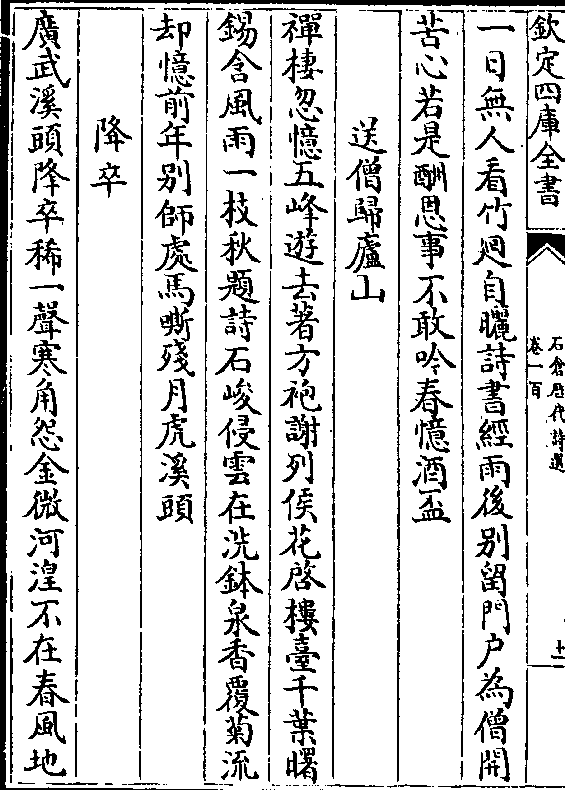 欽定四庫全書
石倉歷代詩選
卷一百
十一
一日無人看竹廻自曬詩書經雨後别留門户為僧開
苦心若是酬恩事不敢吟春憶酒盃
送僧歸廬山
禪棲忽憶五峰遊去著方袍謝列侯花啓樓臺千葉曙
錫含風雨一枝秋題詩石峻侵雲在洗鉢泉香覆菊流
却憶前年别師處馬嘶殘月虎溪頭
降卒
廣武溪頭降卒稀一聲寒角怨金微河湟不在春風地